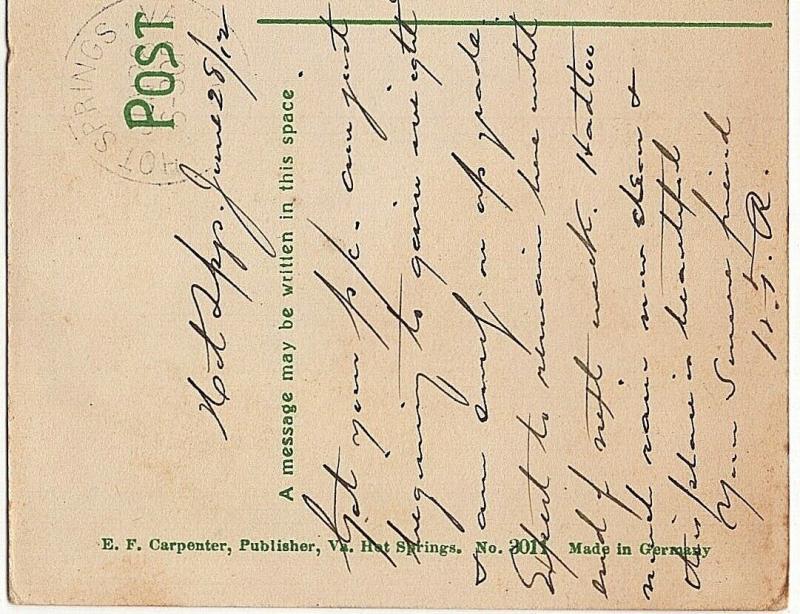 HOT SPRINGS VA
POST
Hot Spgs. June 28/12
A message may be written in this space
Got your p/c. am just
begining to gain weight
& am on up grade.
Expect to remain here until
end of next week. Had too
much rain now clean &
this place is beautiful
Your Sincere friend
R.
E. F. Carpenter, Publisher, Va. Hot Springs. No. 3011 Made in Germany